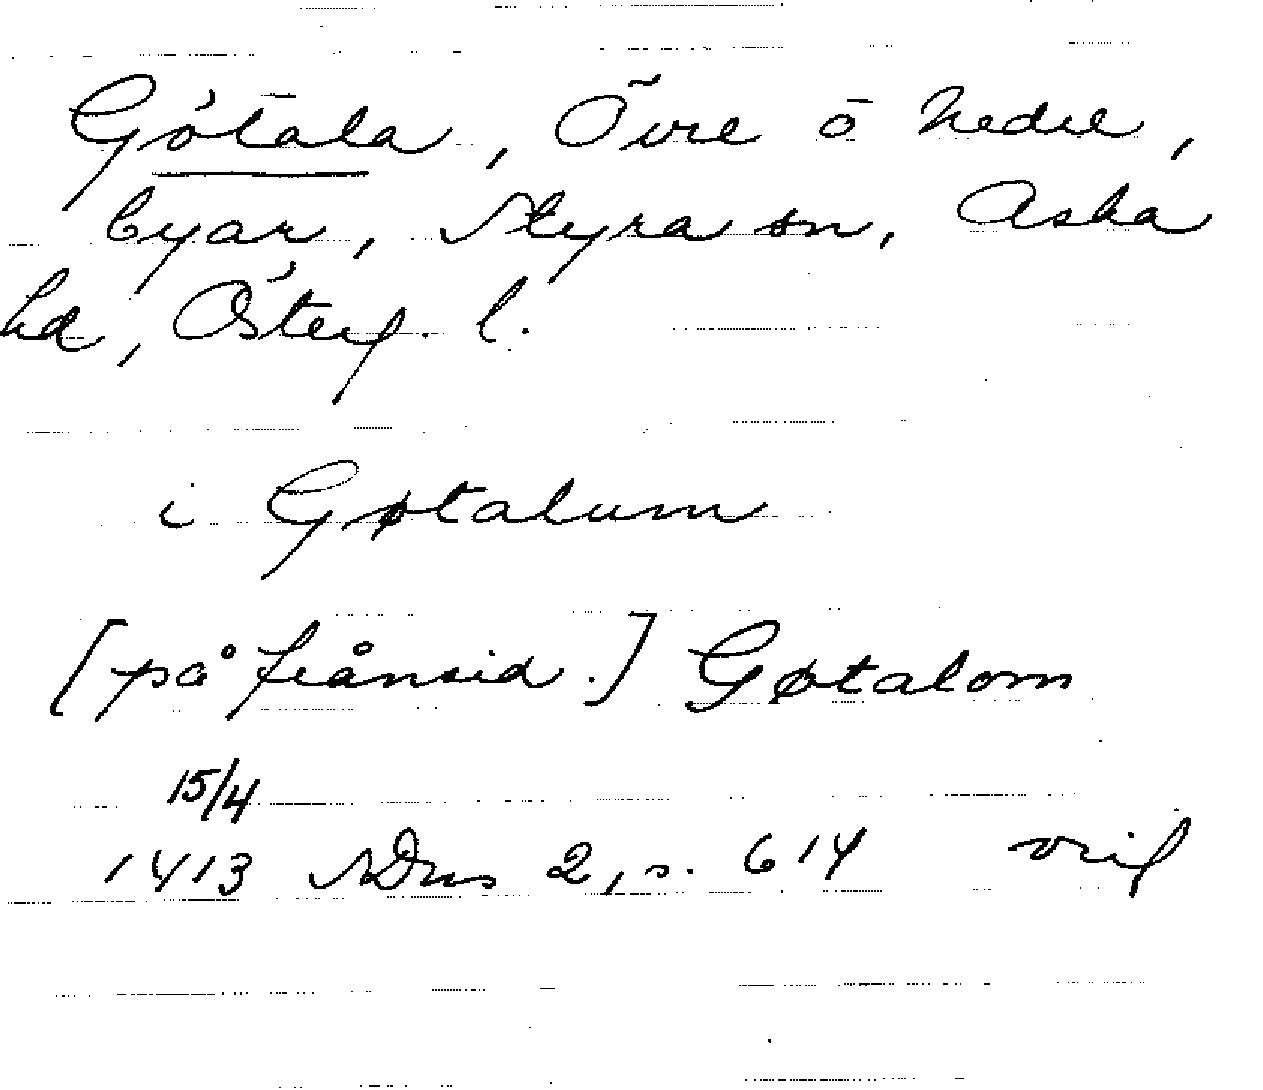 Götala, Övre o Nedre,
byar, Styra sn, Aska
hd, Österg. l.
i Gøtalum
[på frånsid.] Gøtalom
15/4
1413 SDns 2, s. 614 orig